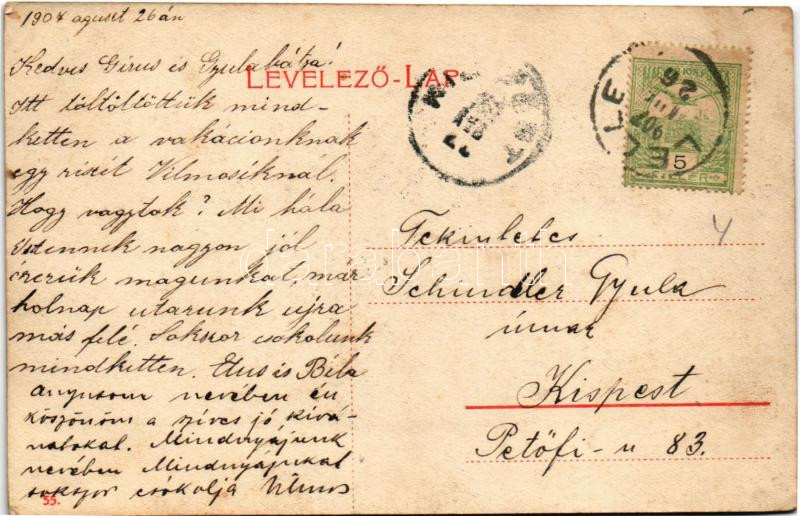 1907 agust 26án
Kedves Girus és Gyula bátyá!
LEVELEZŐ-LAP
Itt töltöttük mind-
ketten a vakációnknak
egy részét Vilmoséknál.
Hogy vagytok? Mi hála
Istennek nagyon jól
érezük magunkat, már
holnap utazunk ujra
más felé. Sokszor csokolunk
mindketten. Etus és Béla
Anyusom nevében én
köszönöm a szíves jó kívá-
natokat. Mindnyájunk
nevében Mindnyájukat
sokszor csókolja Vilmos
55.
LELLE
907
26
5
FILLÉR
4
Tekintetes
Schindler Gyula
úrnak
Kispest
Petőfi-u 83.
darabanth